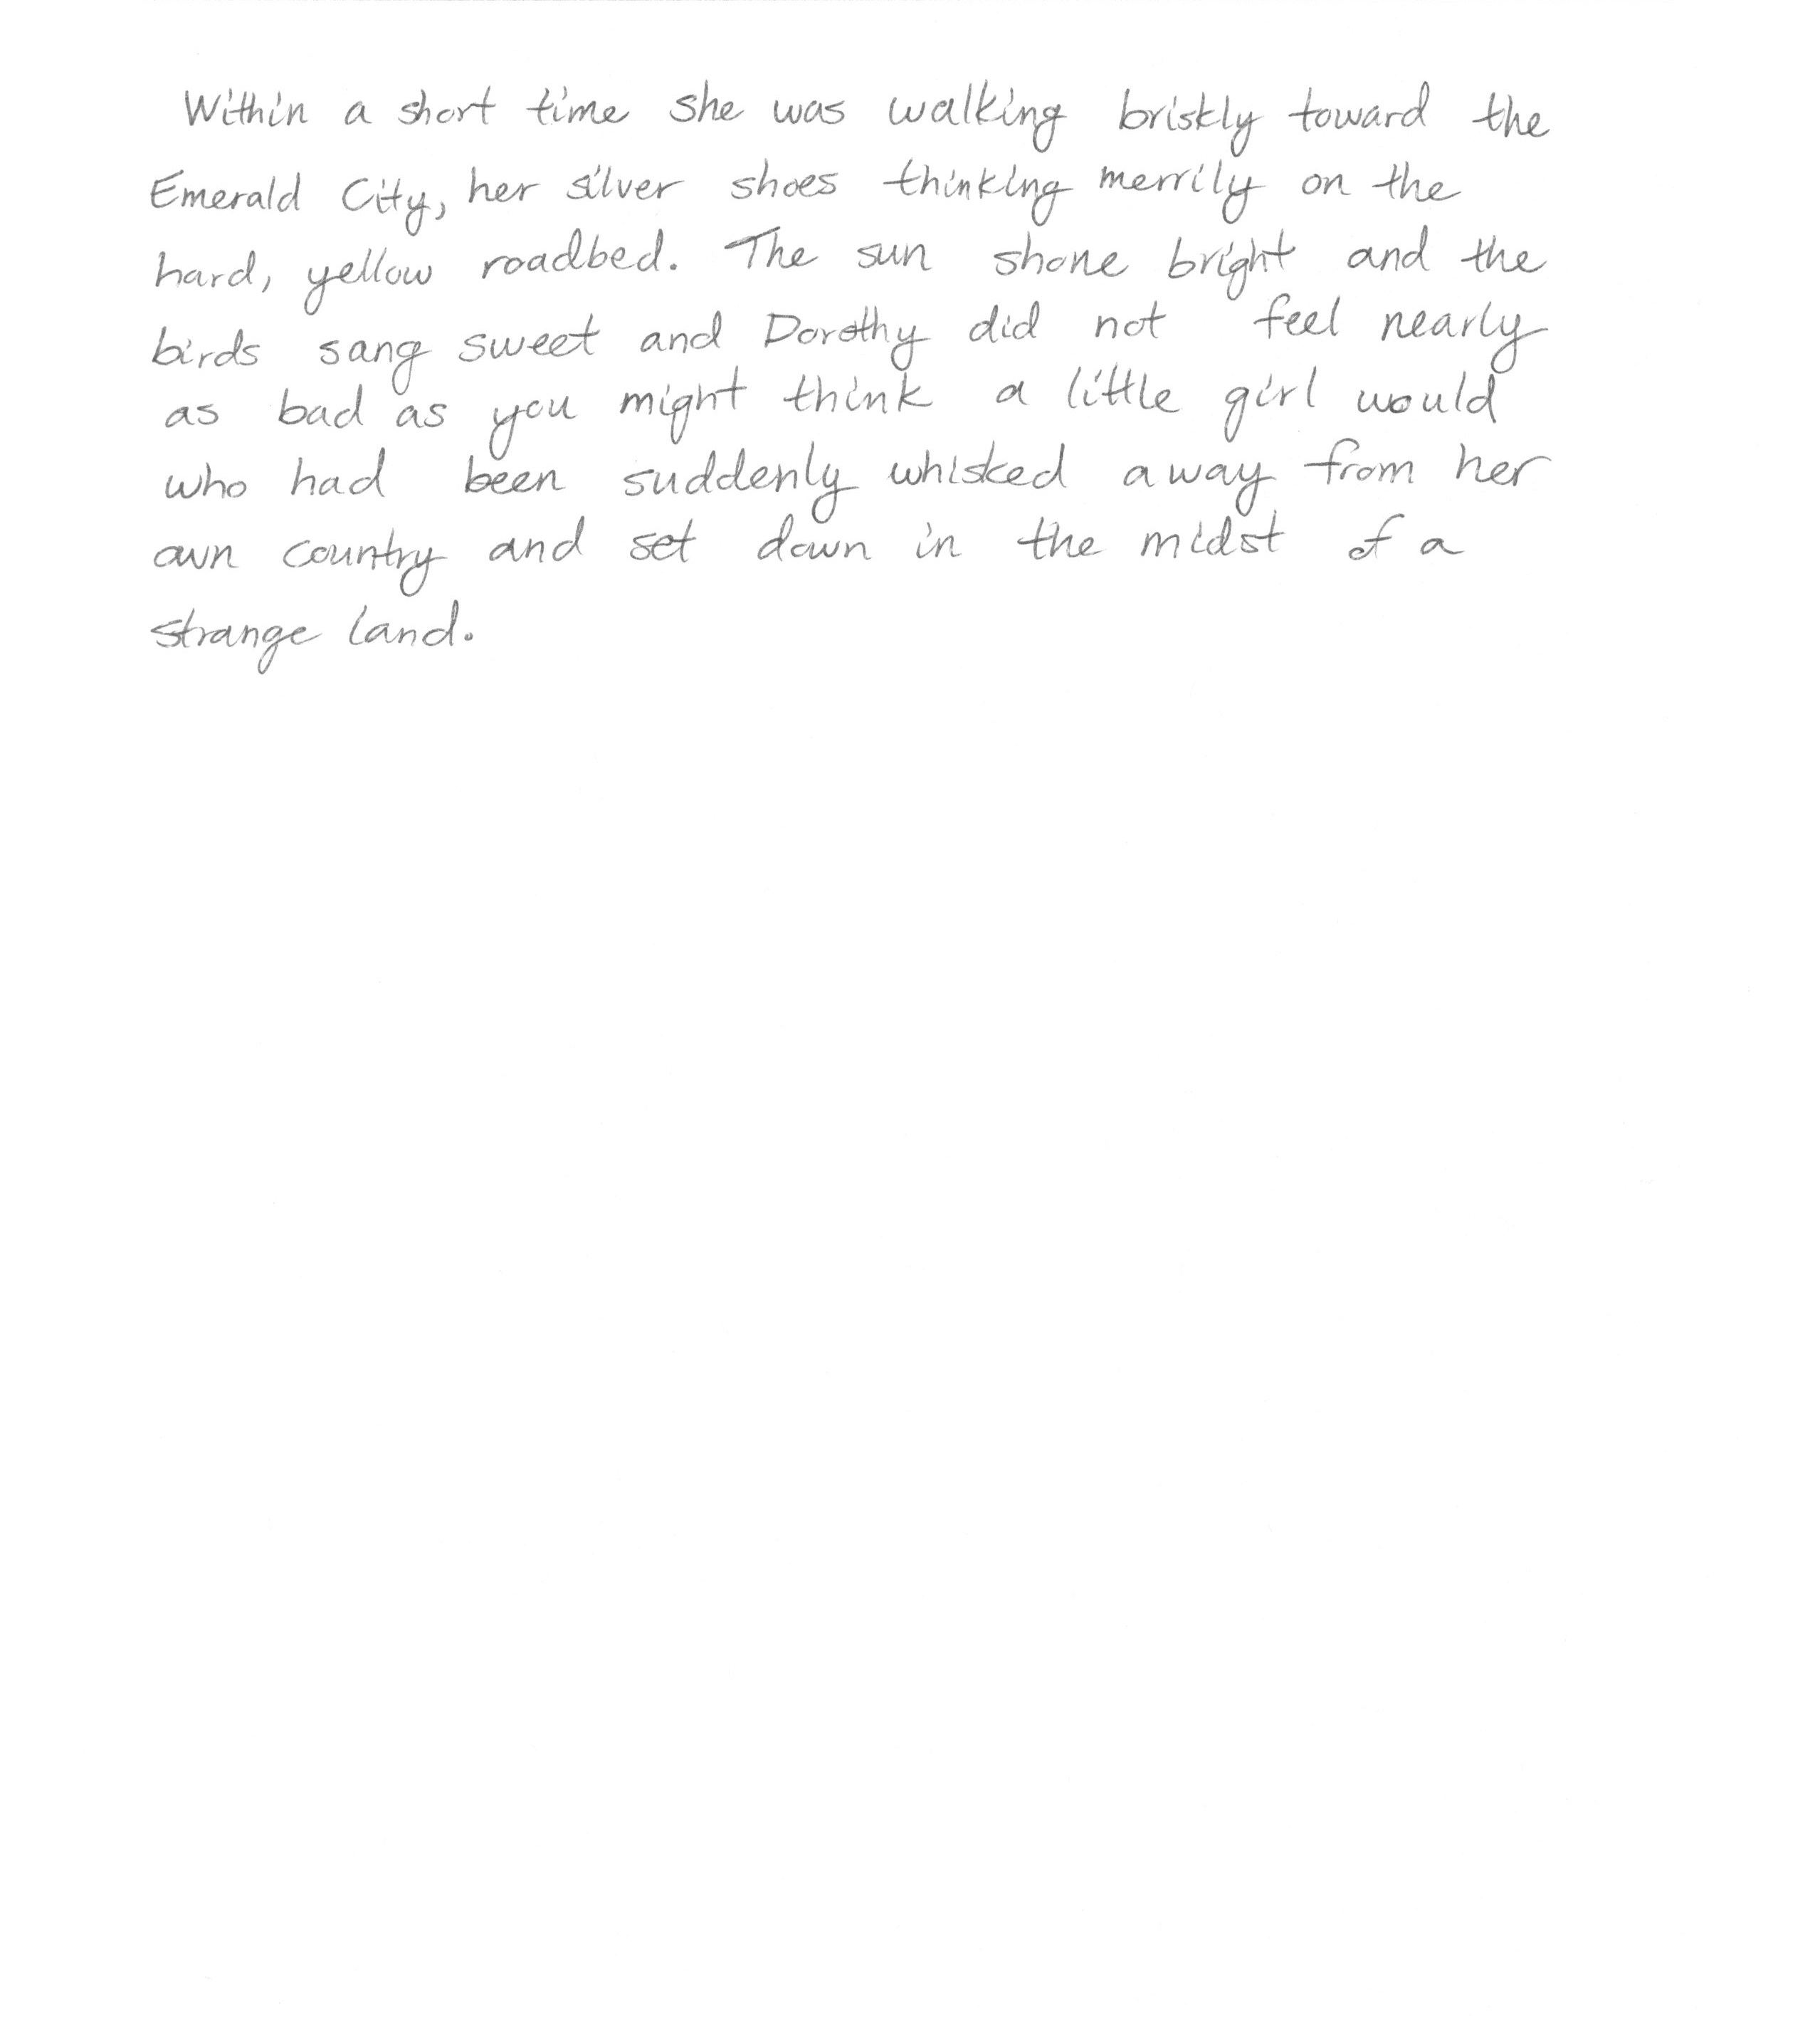 Within a short time she was walking briskly toward the
Emerald City, her silver shoes thinking merrily on the
hard, yellow roadbed. The sun shone bright and the
birds sang sweet and Dorothy did not feel nearly
as bad as you might think a little girl would
who had been suddenly whisked away from her
own country and set down in the midst of a
strange land.